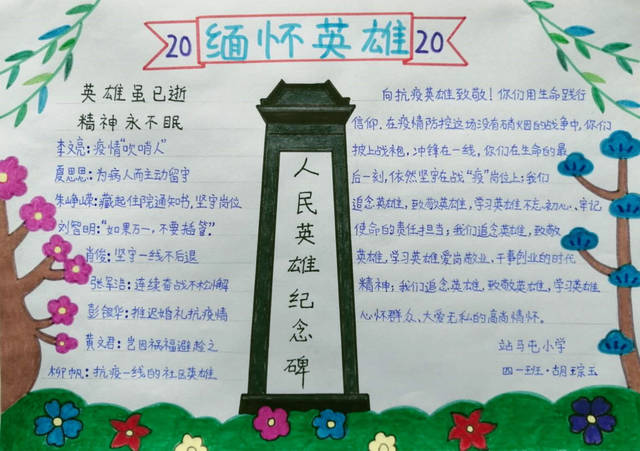 20 缅怀英雄 20
英雄虽已逝
精神永不眠
李文亮:疫情“吹哨人”
夏思思:为病人而主动留守
朱峥嵘:藏起住院通知书,坚守岗位
刘智明:“如果万一,不要插管”
肖俊:坚守一线不后退
张军浩:连续奋战不松懈
彭银华:推迟婚礼抗疫情
黄文君:岂因祸福避趋之
柳帆:抗疫一线的社区英雄
人民英雄纪念碑
向抗疫英雄致敬!你们用生命践行
信仰.在疫情防控这场没有硝烟的战争中,你们
披上战袍,冲锋在一线,你们在生命的最
后一刻,依然坚守在战“疫”岗位上;我们
追念英雄,致敬英雄,学习英雄不忘初心、牢记
使命的责任担当;我们追念英雄,致敬
英雄,学习英雄爱岗敬业、干事创业的时代
精神;我们追念英雄,致敬英雄,学习英雄
心怀群众、大爱无私的高尚情怀。
站马屯小学
四一班·胡琮玉